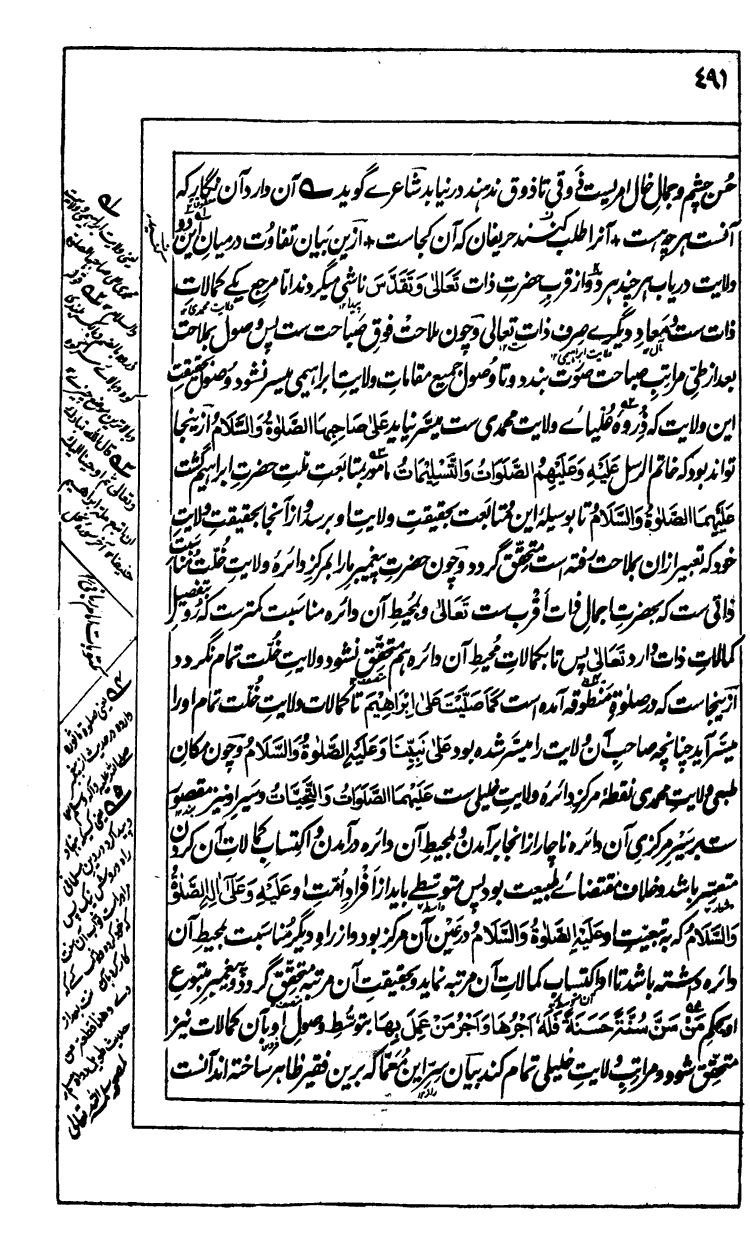 ٤٩١
حسن چشم و جمال خال امریست ذوقی تا ذوق ندهند در نیابد شاعرے گوید آن دارد آن نگار که
آنست هرچه هست + آنرا طلب کنند حریفان که آن کجاست + ازین بیان تفاوت درمیان این دو
ولایت دریاب هر چند هر دو از قرب حضرت ذات تَعَالیٰ وَتَقَدَّسَ ناشی میگردند اما مرجع یکے کمالات
ذات ست و معاد دیگرے صرف ذات تعالی و چون ملاحت فوق صباحت ست پس وصول بملاحت
بعد از طی مراتب صباحت صورت بندد و تا وصول جمیع مقامات ولایت ابراهیمی میسر نشود وصول بحقیقت
این ولایت که ذروهٔ علیاے ولایت محمدی ست میسر نیاید عَلیٰ صَاحِبِهِمَا الصَّلوٰةُ وَالسَّلَامُ ازینجا
تواند بود که خاتم الرسل عَلَیْهِ وَعَلَیْهِمُ الصَّلَوَاتُ وَالتَّسْلِیْمَاتُ مامور بمتابعت ملت حضرت ابراهیم گشت
عَلَیْهِمَا الصَّلوٰةُ وَالسَّلَامُ تا بوسیلهٔ این متابعت بحقیقت ولایت او برسد و از آنجا بحقیقت ولایت
خود که تعبیر ازان بملاحت رفته است متحقق گردد و چون حضرت پیغمبر ما را بمرکز دائرهٔ ولایت خلت مناسبت
ذاتی ست که بحضرت اجمال ذات اقرب ست تَعَالیٰ و بمحیط آن دائره مناسبت کمترست که رو بتفصیل
کمالات ذات دارد تَعَالیٰ پس تا بکمالات محیط آن دائره هم متحقق نشود ولایت خلت تمام نگردد
ازینجاست که در صلوٰة منطوقه آمده است کَمَا صَلَّیْتَ عَلیٰ اِبْرَاهِیْمَ تا کمالات ولایت خلت تمام او را
میسر آید چنانچه صاحب آن ولایت را میسر شده بود عَلیٰ نَبِیِّنَا وَعَلَیْهِ الصَّلوٰةُ وَالسَّلَامُ و چون مکان
طبعی ولایت محمدی نقطهٔ مرکز دائرهٔ ولایت خلیلی ست عَلَیْهِمَا الصَّلَوَاتُ وَالتَّحِیَّاتُ و سیر او نیز مقصور
ست بر سیر مرکزی آن دائره ناچار از انجا برآمدن و بمحیط آن دائره درآمدن و اکتساب کمالات آن کردن
متعسر باشد و خلاف مقتضاے طبیعت بود پس متوسطے باید از افراد امت او عَلَیْهِ وَعَلیٰ اٰلِهِ الصَّلوٰةُ
وَالسَّلَامُ که به تبعیت او عَلَیْهِ الصَّلوٰةُ وَالسَّلَامُ در عین آن مرکز بود و از راه دیگر مناسبت بمحیط آن
دائره داشته باشد تا او اکتساب کمالات آن مرتبه نماید و بحقیقت آن مرتبه متحقق گردد و پیغمبر متبوع
او بحکم مَنْ سَنَّ سُنَّةً حَسَنَةً فَلَهٗ اَجْرُهَا وَاَجْرُ مَنْ عَمِلَ بِهَا بتوسط وصول او بآن کمالات نیز
متحقق شود و مراتب ولایت خلیلی تمام کند بیان سر این معما که برین فقیر ظاهر ساخته اند آنست
یعنی ولایت ابراهیمی و ولایت
محمدی علی صاحبهما الصلوة
والسلام
قال الله تبارک
وتعالیٰ ثم اوحینا الیک
ان اتبع ملة ابراهیم
حنیفا
مکتوبات امام ربانی